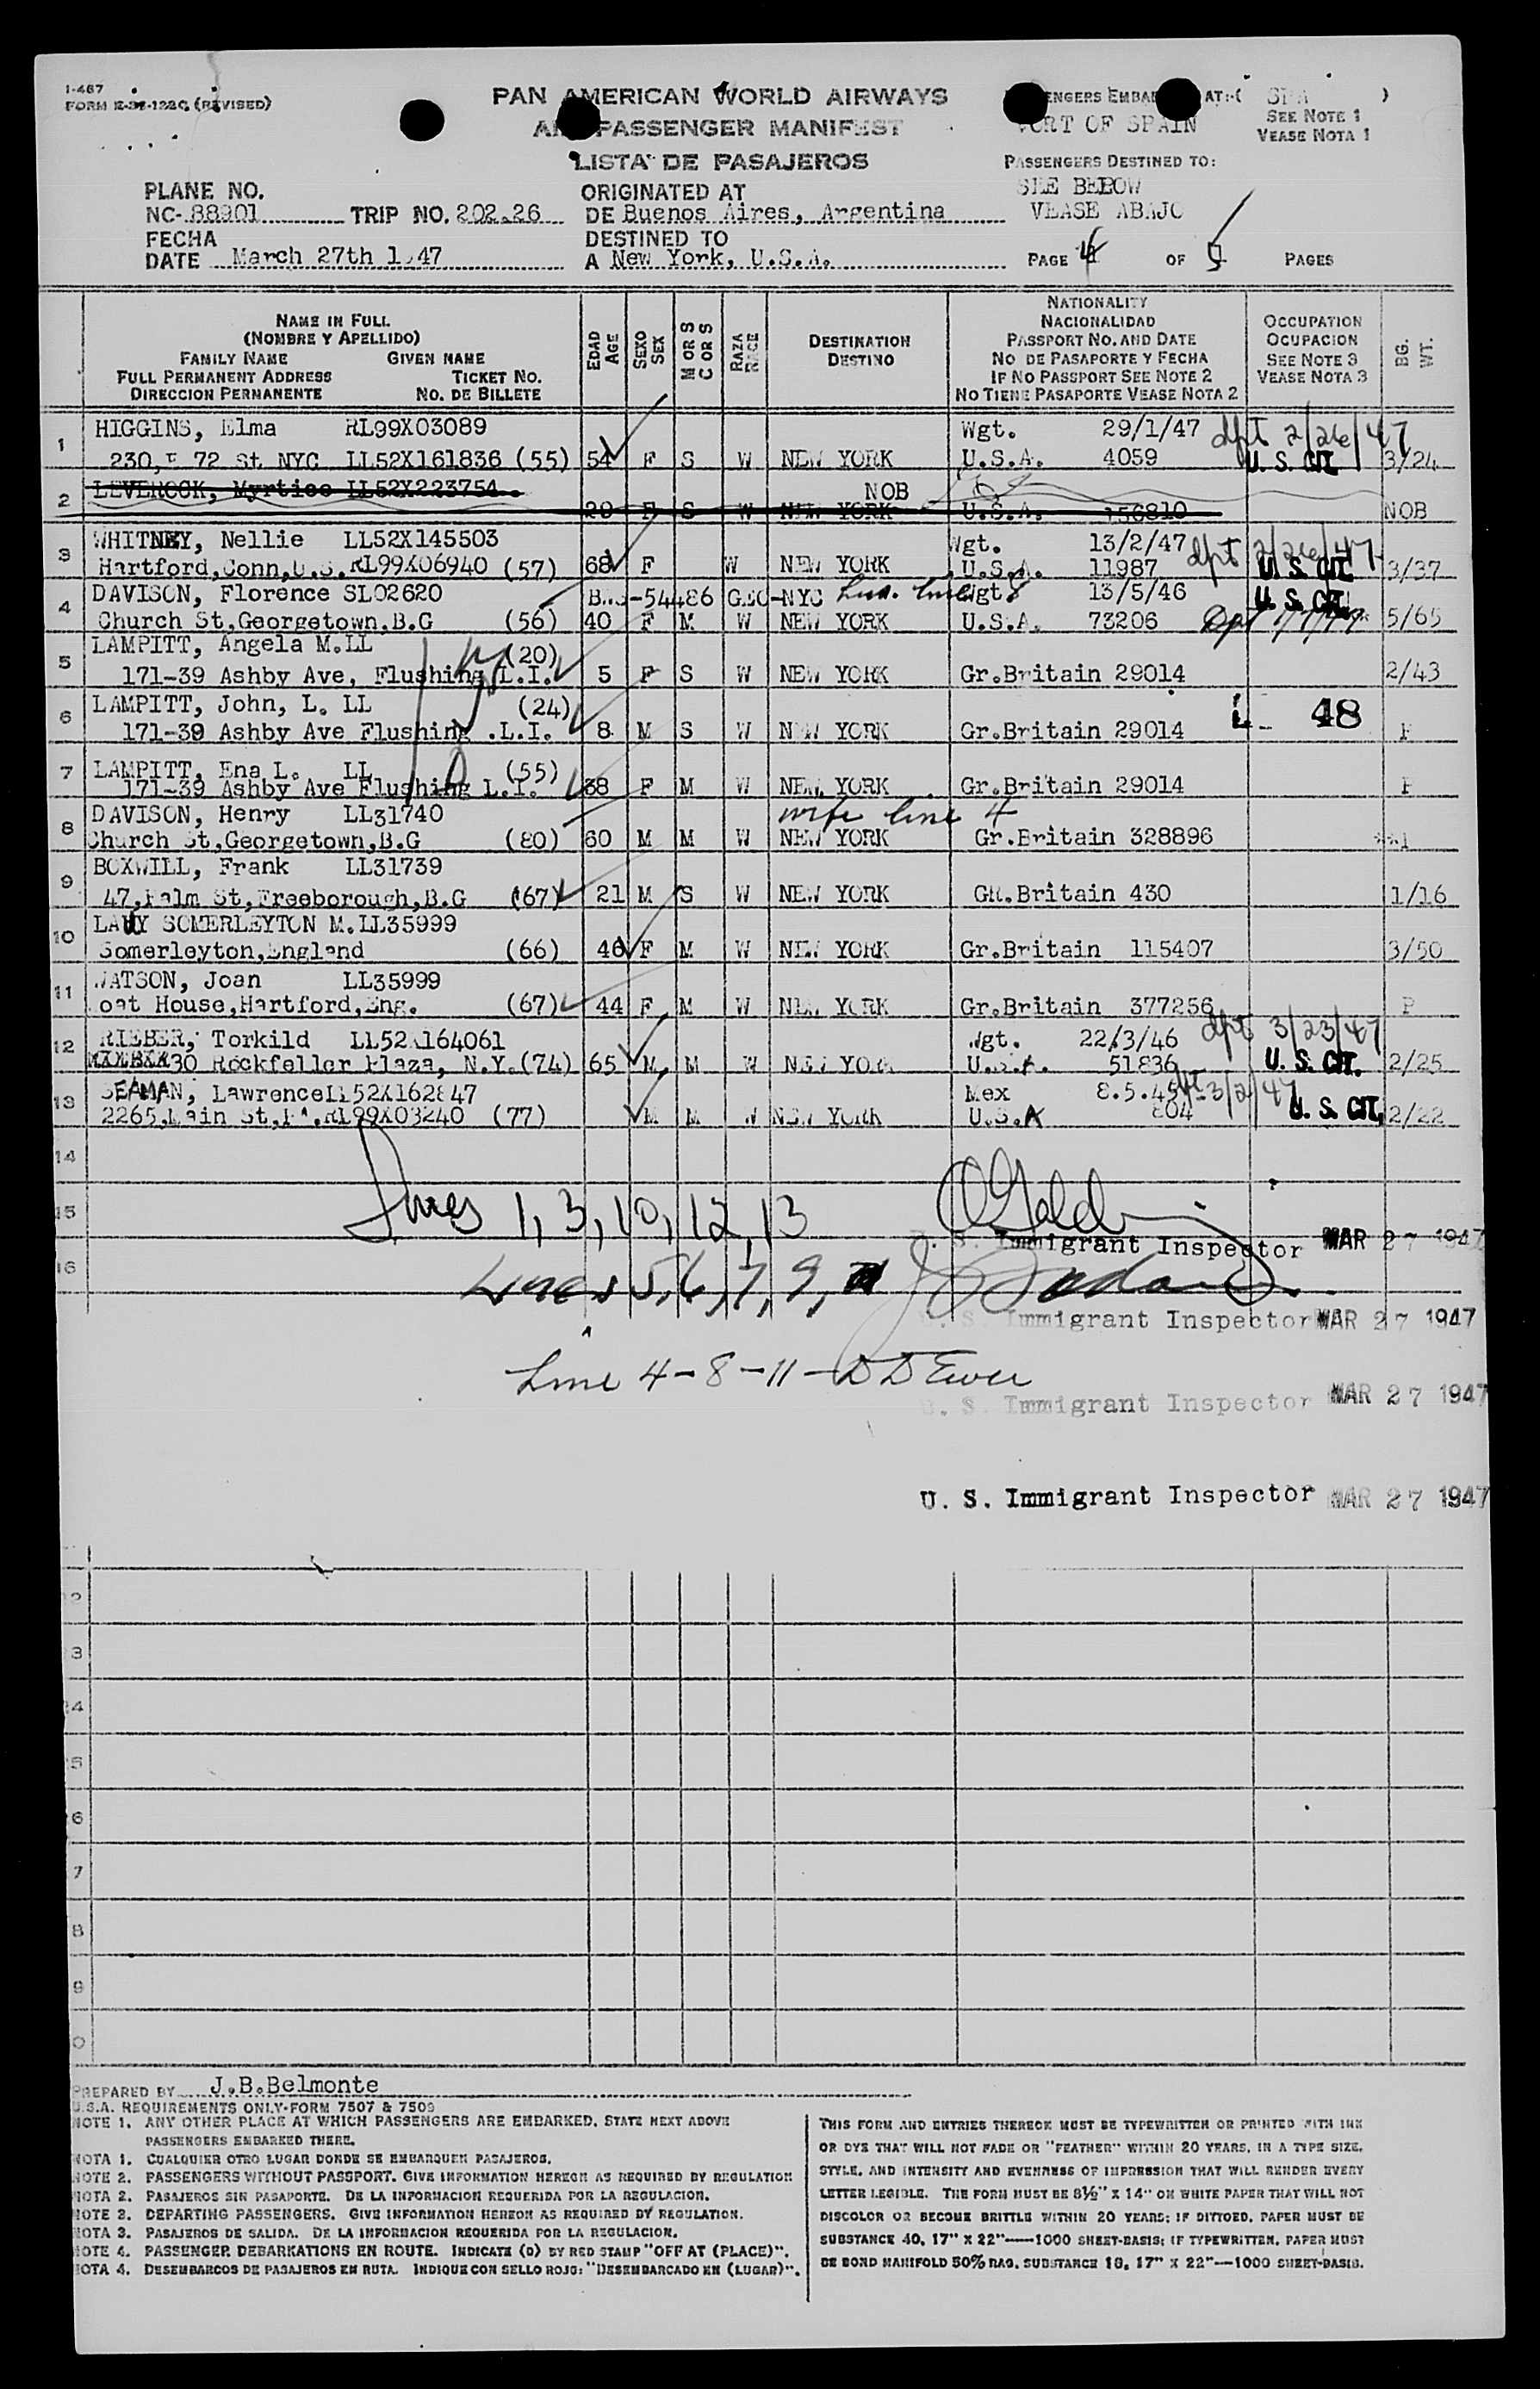 I-467
FORM (REVISED)
PAN AMERICAN WORLD AIRWAYS
PASSENGER MANIFEST
LISTA DE PASAJEROS
AT:-(
)
SEE NOTE 1
VEASE NOTA 1
PORT OF SPAIN
PASSENGERS DESTINED TO:
SEE BELOW
VEASE ABAJO
PLANE NO.
NC-88901 TRIP NO. 202.26
ORIGINATED AT
DE Buenos Aires, Argentina
FECHA
DATE March 27th 1947
DESTINED TO
A New York, U.S.A.
PAGE 4 OF 5 PAGES
NAME IN FULL
(NOMBRE Y APELLIDO)
FAMILY NAME GIVEN NAME
FULL PERMANENT ADDRESS TICKET NO.
DIRECCION PERMANENTE NO. DE BILLETE
EDAD AGE
SEXO SEX
M OR S
C OR S
RAZA RACE
DESTINATION
DESTINO
NATIONALITY
NACIONALIDAD
PASSPORT NO. AND DATE
NO DE PASAPORTE Y FECHA
IF NO PASSPORT SEE NOTE 2
NO TIENE PASAPORTE VEASE NOTA 2
OCCUPATION
OCUPACION
SEE NOTE 3
VEASE NOTA 3
BG. WT.
1 HIGGINS, Elma RL99X03089 Wgt. 29/1/47 dpt 2/26/47
230,E 72 St NYC LL52X161836 (55) 54 F S W NEW YORK U.S.A. 4059 U.S. CIT. 3/24
2 LEVEROCK, Myrtice LL52X223754 NOB
29 F S W NEW YORK U.S.A. 156810 NOB
3 WHITNEY, Nellie LL52X145503 Wgt. 13/2/47 dpt 2/26/47
Hartford,Conn,U.S. RL99X06940 (57) 68 F W NEW YORK U.S.A. 11987 U.S. CIT. 3/37
4 DAVISON, Florence SL02620 -54486 GEO-NYC Wgt 13/5/46 U.S. CIT.
Church St,Georgetown,B.G (56) 40 F M W NEW YORK U.S.A. 73206 5/65
5 LAMPITT, Angela M.LL (20)
171-39 Ashby Ave, Flushing, L.I. 5 F S W NEW YORK Gr.Britain 29014 2/43
6 LAMPITT, John, L. LL (24) 48
171-39 Ashby Ave Flushing .L.I. 8 M S W NEW YORK Gr.Britain 29014
7 LAMPITT, Ena L. LL (55)
171-39 Ashby Ave Flushing L.I. 38 F M W NEW YORK Gr.Britain 29014 P
8 DAVISON, Henry LL31740 wife line 4
Church St,Georgetown,B.G (80) 60 M M W NEW YORK Gr.Britain 328896
9 BOXWILL, Frank LL31739
47,Palm St,Freeborough,B.G (67) 21 M S W NEW YORK GR.Britain 430 1/16
10 LADY SOMERLEYTON M.LL35999
Somerleyton,England (66) 46 F M W NEW YORK Gr.Britain 115407 3/50
11 WATSON, Joan LL35999
oat House,Hartford,Eng. (67) 44 F M W NEW YORK Gr.Britain 377256 P
12 RIEBER, Torkild LL52X164061 Wgt. 22/3/46 dpt 3/23/47
30 Rockfeller Plaza, N.Y.(74) 65 M M W NEW YORK U.S.A. 51836 U.S. CIT. 2/25
13 SEAMAN, Lawrence LL52X162847 Mex 8.5.45 3/2/47
2265,Main St, RL99X03240 (77) M M W NEW YORK U.S.A 804 U.S. CIT. 2/22
14
15 Lines 1, 3, 10, 12, 13
U. S. Immigrant Inspector MAR 27 1947
16 Lines 5, 6, 7, 9,
U. S. Immigrant Inspector MAR 27 1947
Line 4-8-11-
U. S. Immigrant Inspector MAR 27 1947
U. S. Immigrant Inspector MAR 27 1947
2
3
4
5
6
7
8
9
0
PREPARED BY J.B.Belmonte
U.S.A. REQUIREMENTS ONLY-FORM 7507 & 7509
NOTE 1. ANY OTHER PLACE AT WHICH PASSENGERS ARE EMBARKED, STATE NEXT ABOVE
PASSENGERS EMBARKED THERE.
NOTA 1. CUALQUIER OTRO LUGAR DONDE SE EMBARQUEN PASAJEROS.
NOTE 2. PASSENGERS WITHOUT PASSPORT. GIVE INFORMATION HEREON AS REQUIRED BY REGULATION
NOTA 2. PASAJEROS SIN PASAPORTE. DE LA INFORMACION REQUERIDA POR LA REGULACION.
NOTE 3. DEPARTING PASSENGERS. GIVE INFORMATION HEREON AS REQUIRED BY REGULATION.
NOTA 3. PASAJEROS DE SALIDA. DE LA INFORMACION REQUERIDA POR LA REGULACION.
NOTE 4. PASSENGER DEBARKATIONS EN ROUTE. INDICATE (D) BY RED STAMP "OFF AT (PLACE)".
NOTA 4. DESEMBARCOS DE PASAJEROS EN RUTA. INDIQUE CON SELLO ROJO: "DESEMBARCADO EN (LUGAR)".
THIS FORM AND ENTRIES THEREON MUST BE TYPEWRITTEN OR PRINTED WITH INK
OR DYE THAT WILL NOT FADE OR "FEATHER" WITHIN 20 YEARS, IN A TYPE SIZE,
STYLE, AND INTENSITY AND EVENNESS OF IMPRESSION THAT WILL RENDER EVERY
LETTER LEGIBLE. THE FORM MUST BE 8½" X 14" ON WHITE PAPER THAT WILL NOT
DISCOLOR OR BECOME BRITTLE WITHIN 20 YEARS; IF DITTOED, PAPER MUST BE
SUBSTANCE 40, 17" X 22"—1000 SHEET-BASIS; IF TYPEWRITTEN, PAPER MUST
BE BOND MANIFOLD 50% RAG, SUBSTANCE 16, 17" X 22"—1000 SHEET-BASIS.